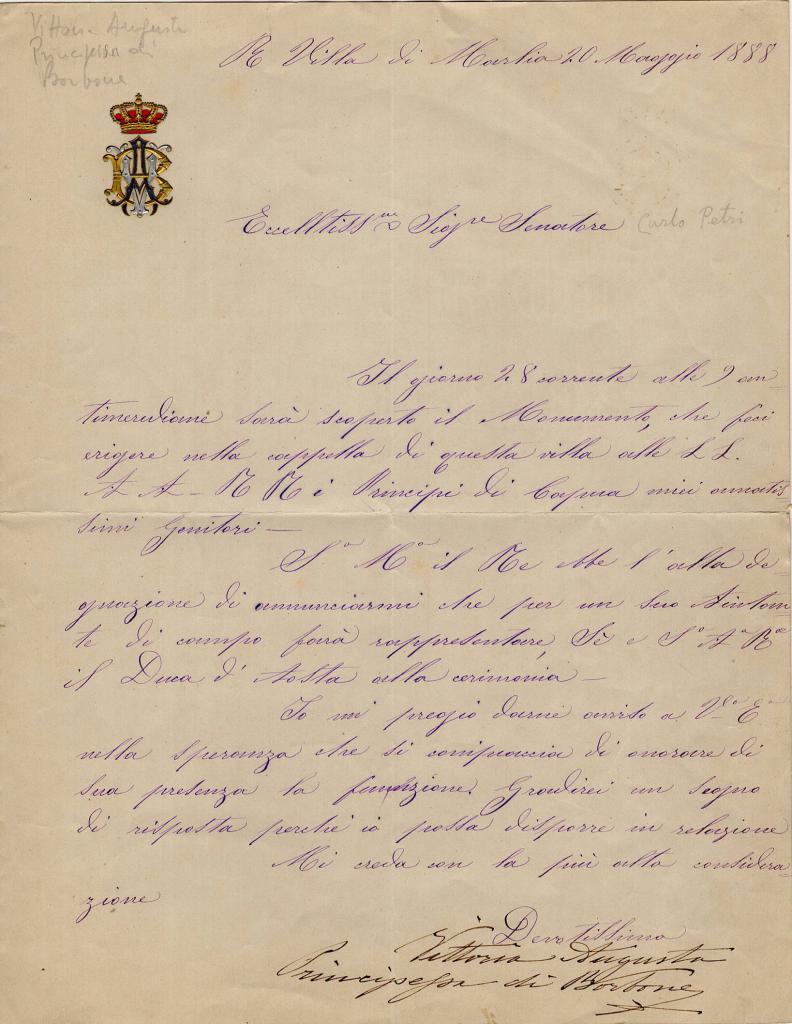 Vittoria Augusta
Principessa di
Borbone
R Villa di Marlia 20 Maggio 1888
Eccelltissmo Sigre Senatore Carlo Petri
Il giorno 28 corrente alle 9 an
timeridiane sarà scoperto il Monumento, che feci
erigere nella cappella di questa villa alle L L.
A A - R R i Principi di Capua miei amatis
simi Genitori —
Sa Ma il Re ebbe l'alta de
gnazione di annunciarmi che per un suo Aiutan
te di campo farà rappresentare, Sè e Sa Aa Rle
il Duca d'Aosta alla cerimonia —
Io mi pregio darne avviso a Va Ea
nella speranza che si compiaccia di onorare di
sua presenza la funzione. Gradirei un segno
di risposta perchè io possa disporre in relazione
Mi creda con la più alta considera
zione
Devotissima
Vittoria Augusta
Principessa di Borbone